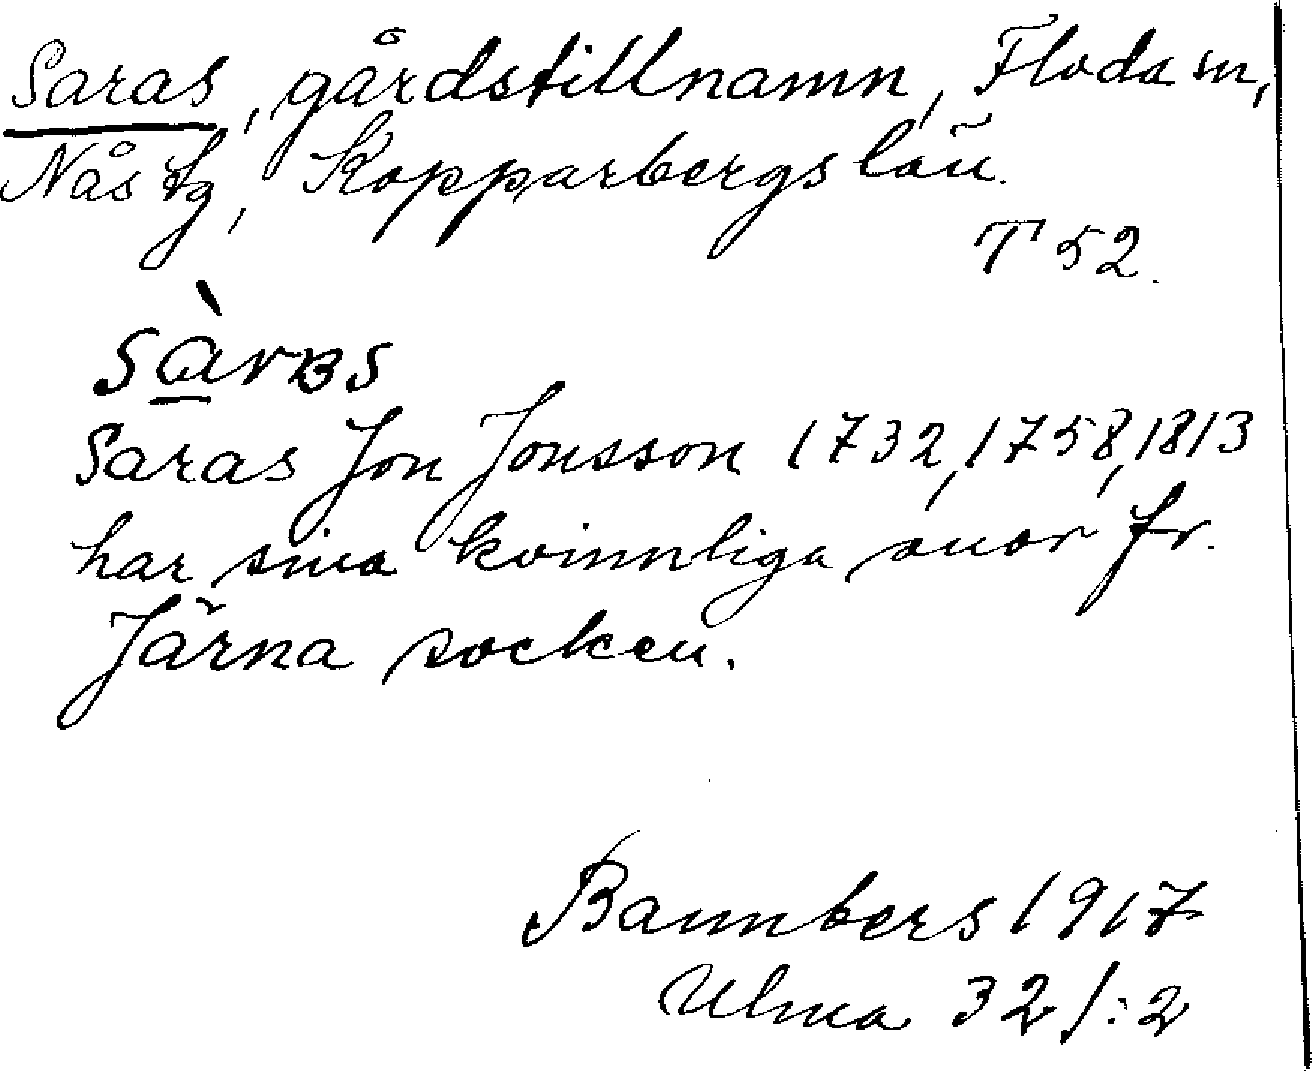 Saras, gårdstillnamn, Floda sn,
Nås tg, Kopparbergs län.
T 52.
sàrɞs
Saras Jon Jonsson 1732, 1758, 1813
har sina kvinnliga anor fr.
Järna socken.
Bannbers 1917
Ulma 32/:2